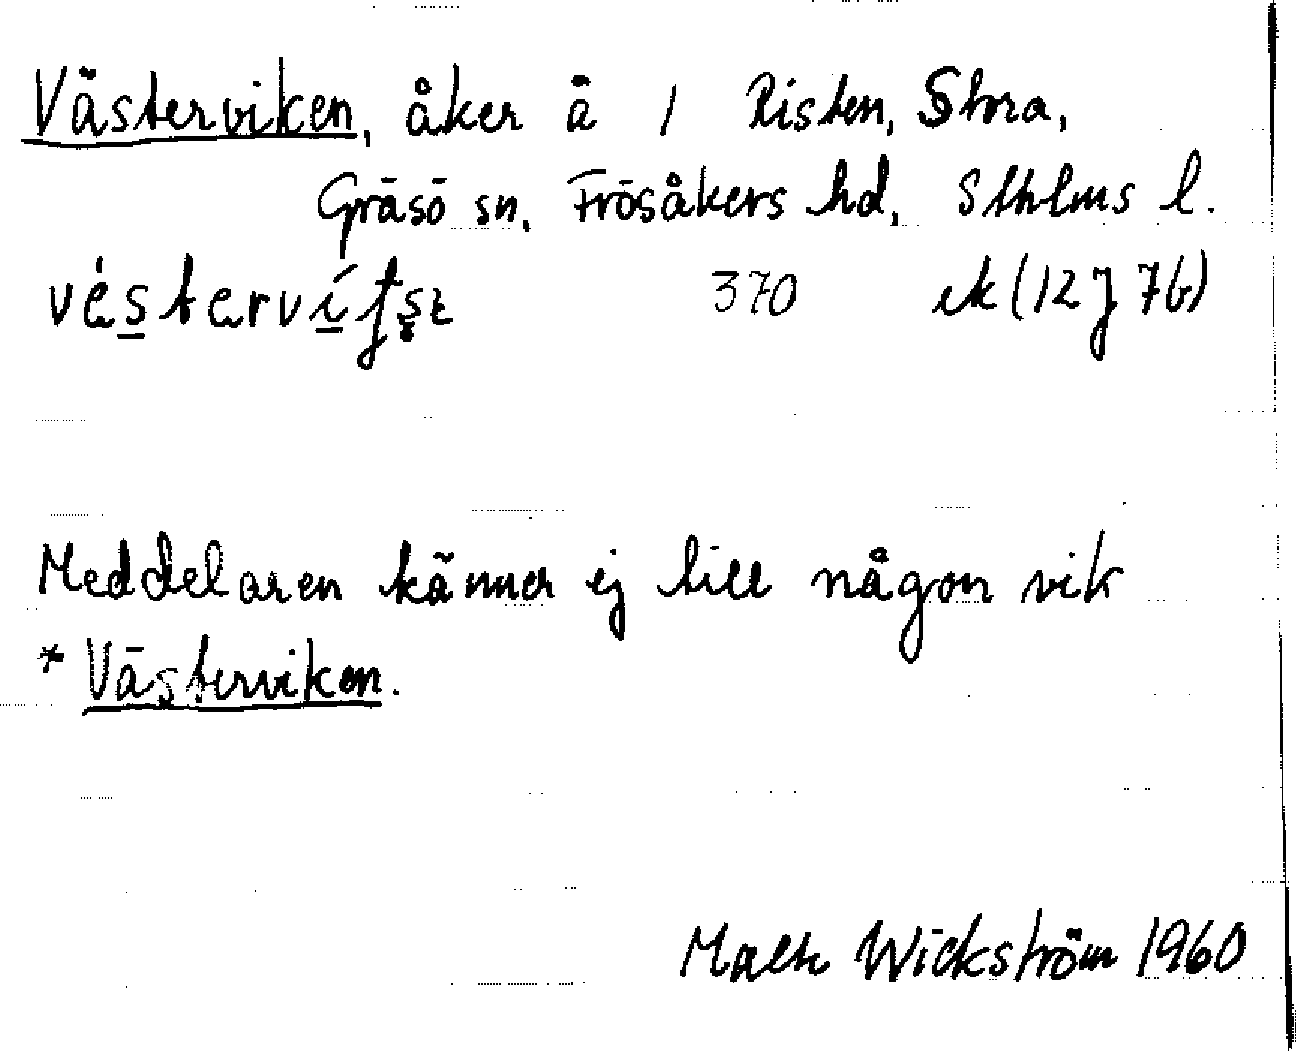 Västerviken, åker å 1 Risten, Stora,
Gräsö sn, Frösåkers hd, Sthlms l.
370 ek (12J 7b)
Meddelaren känner ej till någon vik
* Västerviken.
Wickström 1960